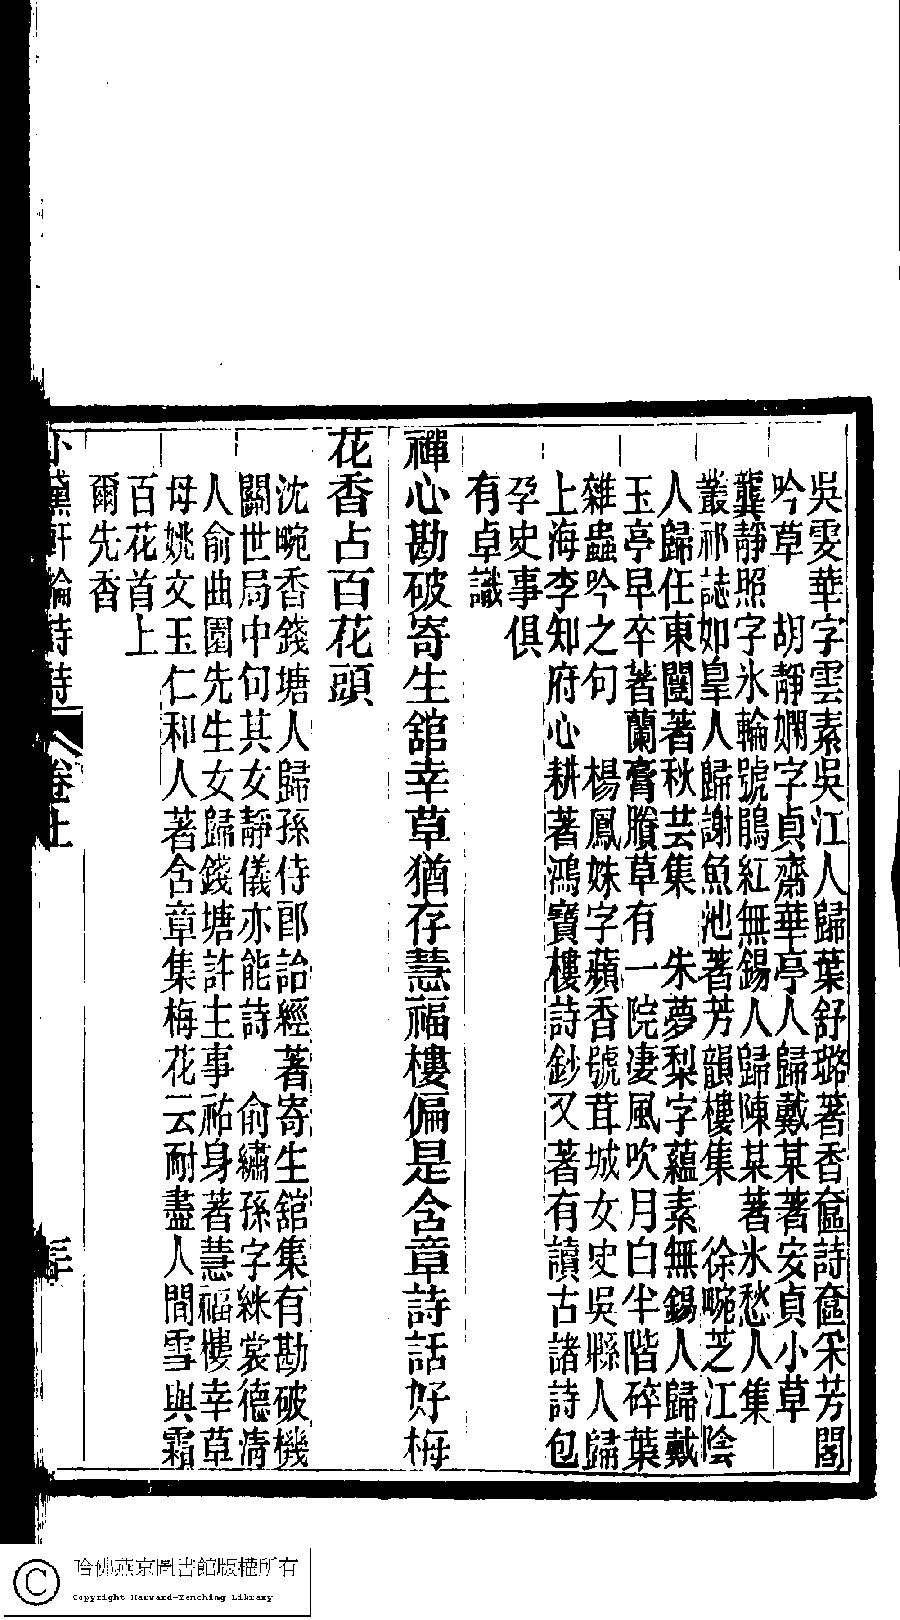 吳雯華字雲素吳江人歸葉舒璐著香奩詩奩采芳閣
吟草　胡靜嫻字貞齋華亭人歸戴某著安貞小草
龔靜照字氷輪號鵑紅無錫人歸陳某著氷愁人集
叢祁誌如皐人歸謝魚池著芳韻樓集　徐畹芝江陰
人歸任東閫著秋芸集　朱夢梨字蘊素無錫人歸戴
玉亭早卒著蘭膏賸草有一院凄風吹月白半階碎葉
雜蟲吟之句　楊鳳姝字蘋香號茸城女史吳縣人歸
上海李知府心耕著鴻寶樓詩鈔又著有讀古諸詩包
孕史事俱
有卓識
禪心勘破寄生舘幸草猶存慧福樓偏是含章詩話好梅
花香占百花頭
沈畹香錢塘人歸孫侍郎詒經著寄生舘集有勘破機
關世局中句其女靜儀亦能詩　俞繡孫字綵裳德清
人俞曲園先生女歸錢塘許主事祐身著慧福樓幸草
母姚文玉仁和人著含章集梅花云耐盡人間雪與霜
百花首上
爾先香
小黛軒論詩詩
卷上
三十
哈佛燕京圖書館版權所有
Copyright Harvard-Yenching Library